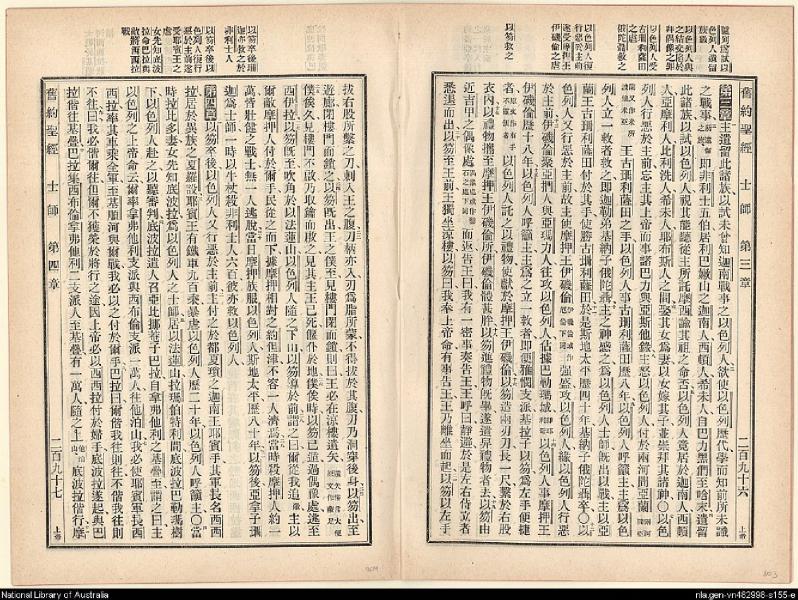 舊約聖經 士師 第三章 二百九十六 上帝
以色列人與之結交從於拜偶像之罪
以色列人復行惡於主前遂受摩押王伊磯倫之虐
以笏救之
第三章 主遺留此諸族以試未曾知迦南戰事之以色列人欲使以色列歷代學而知前所未識
之戰事 即非利士五伯居利巴嫩山之迦南人西頓人希未人自巴力黑們至哈末遺留
此諸族以試以色列人視其能聽從主所託摩西諭其祖之命否以色列人竟居於迦南人西頓
人亞摩利人比利洗人希未人耶布斯人之間娶其女爲妻以女嫁其子並崇拜其諸神○以色
列人行惡於主前忘主其上帝而事諸巴力與亞斯他錄主怒以色列人付於兩河間亞蘭
王古珊利薩田之手以色列人事古珊利薩田歷八年以色列人呼籲主主爲以色
列人立一救者救之即迦勒弟基納子俄陀聶主之神感之爲以色列人士師既出以戰主以亞
蘭王古珊利薩田付於其手使勝古珊利薩田於是斯地太平歷四十年基納子俄陀聶卒○以
色列人又行惡於主前故主使摩押王伊磯倫 強盛攻以色列人緣以色列人行惡
於主前伊磯倫集亞捫人與亞瑪力人往攻以色列人佔據巴勒瑪城 以色列人事摩押王
伊磯倫歷十八年以色列人呼籲主主爲之立一救者即便雅憫支派基拉子以笏爲左手便捷
者 以色列人託之以禮物使獻於摩押王伊磯倫以笏造兩刃刀長一尺繫於右股
衣內以禮物攜至摩押王伊磯倫所伊磯倫體甚胖以笏進禮物既畢遂遣舁禮物者去以笏由
近吉甲之偶像處 而返告王曰我有一密事奏告王王呼曰靜避於是左右侍立者
悉退而出以笏至王前王獨坐涼樓以笏曰我奉上帝命有事告王王乃離坐而起以笏以左手
以笏卒後珊迦亦救之於非利士人
以笏卒後以色列人復行惡於主前遂受耶賓王之虐
女先知底波拉命巴拉與敵將西西拉戰
拔右股所繫之刀刺入王之腹刀柄亦入刃爲脂所蒙不得拔於其腹刀乃洞穿後身以笏出至
遊廊閉樓門而鍵之以笏既出王之僕至見樓門閉而鍵則曰王必在涼樓遺矢
僕俟久見樓門不啟乃取鑰而啟之見其主王已死偃仆於地僕俟時以笏已遁過偶像處逃至
西伊拉以笏既至吹角於以法蓮山以色列人隨之下山以笏導於前謂之曰爾從我追 主以
爾敵摩押人付於爾手民從之而下據摩押相對之約但津不容一人濟焉當時殺摩押人約一
萬皆壯健之戰士無一人逃脫當日摩押族服以色列人斯地太平歷八十年以笏後亞拿子珊
迦爲士師一時以牛杖殺非利士人六百彼亦救以色列人
第四章 以笏卒後以色列人又行惡於主前主付之於都夏瑣之迦南王耶賓手其軍長名西西
拉居於異族之夏羅設耶賓王有鐵車九百乘暴虐以色列人歷二十年以色列人呼籲主○當
時拉比多妻女先知底波拉爲以色列人之士師居以法蓮山拉瑪伯特利間底波拉巴勒瑪樹
下以色列人赴之以聽審判底波拉遣人召亞比挪菴子巴拉自拿弗他利之基疊至謂之曰主
以色列之上帝命云爾率拿弗他利支派與西布倫支派一萬人往他泊山我必使耶賓軍長西
西拉率其車乘全軍至基順河與爾戰我必以之付於爾手巴拉曰爾偕我往則往不偕我往則
不往曰我必偕爾往但爾不獲榮於將行之途因上帝必以西西拉付於婦手底波拉遂起與巴
拉偕往基疊巴拉集西布倫拿弗他利二支派人至基疊有一萬人隨之上 底波拉偕行摩
舊約聖經 士師 第四章 二百九十七 上帝
National Library of Australia
nla.gen-vn482998-s155-e